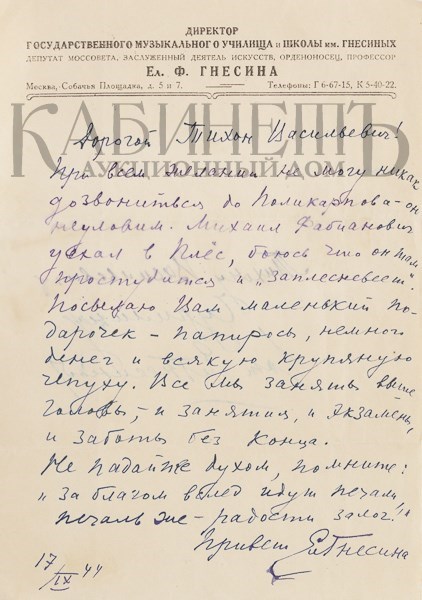 ДИРЕКТОР
ГОСУДАРСТВЕННОГО МУЗЫКАЛЬНОГО УЧИЛИЩА и ШКОЛЫ им. ГНЕСИНЫХ
ДЕПУТАТ МОССОВЕТА, ЗАСЛУЖЕННЫЙ ДЕЯТЕЛЬ ИСКУССТВ, ОРДЕНОНОСЕЦ, ПРОФЕССОР
Ел. Ф. ГНЕСИНА
Москва, Собачья Площадка, д. 5 и 7. Телефоны: Г 6-67-15, К 5-40-22.
КАБИНЕТЪ
АУКЦИОННЫЙ ДОМ
Дорогой Тихон Васильевич!
При всем желании не могу никак
дозвониться до Поликарпова – он
неуловим. Михаил Фабианович
уехал в Плёс, боюсь что он там
простудится и „заплесневеет".
Посылаю Вам маленький по-
дарочек – папиросы, немного
денег и всякую крупяную
чепуху. Все мы заняты выше
головы, – и занятия, и экзамены,
и заботы без конца.
Не падайте духом, помните:
„за благом вслед идут печали,
печаль же – радости залог!"
Привет Ел Гнесина
17/IX 44